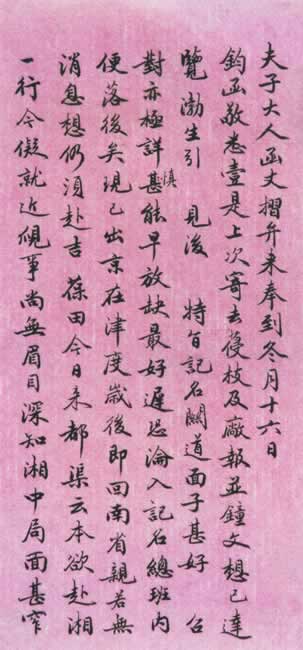 夫子大人函丈摺弁来奉到冬月十六日
鈞函敬悉壹是上次寄去復枝及廠報並鐘文想已達
覽渤生引 見後 特旨記名關道面子甚好 召
對亦極詳慎甚能早放缺最好遲恐淪入記名總班内
便落後矣現已出京在津度歲後即回南省親若無
消息想仍須赴吉 葆田今日来都渠云本欲赴湘
一行今儗就近覛事尚無眉目深知湘中局面甚窄